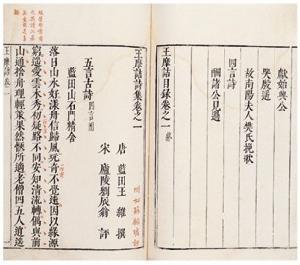 獻始興公
哭殷遙
故南陽夫人樊氏挽歌
四言詩
酬諸公見過
王摩詰詩目錄卷之一
王摩詰詩集卷之一
唐 藍田王 維 撰
宋 廬陵劉辰翁 評
五言古詩
藍田山石門精舍
落日山水好漾舟信歸風玩奇不覺遠因以緣源
窮遙愛雲木秀初疑路不同安知清流轉偶與前
山通捨舟理輕策果然愜所適老僧四五人逍遙
王摩詰 卷一